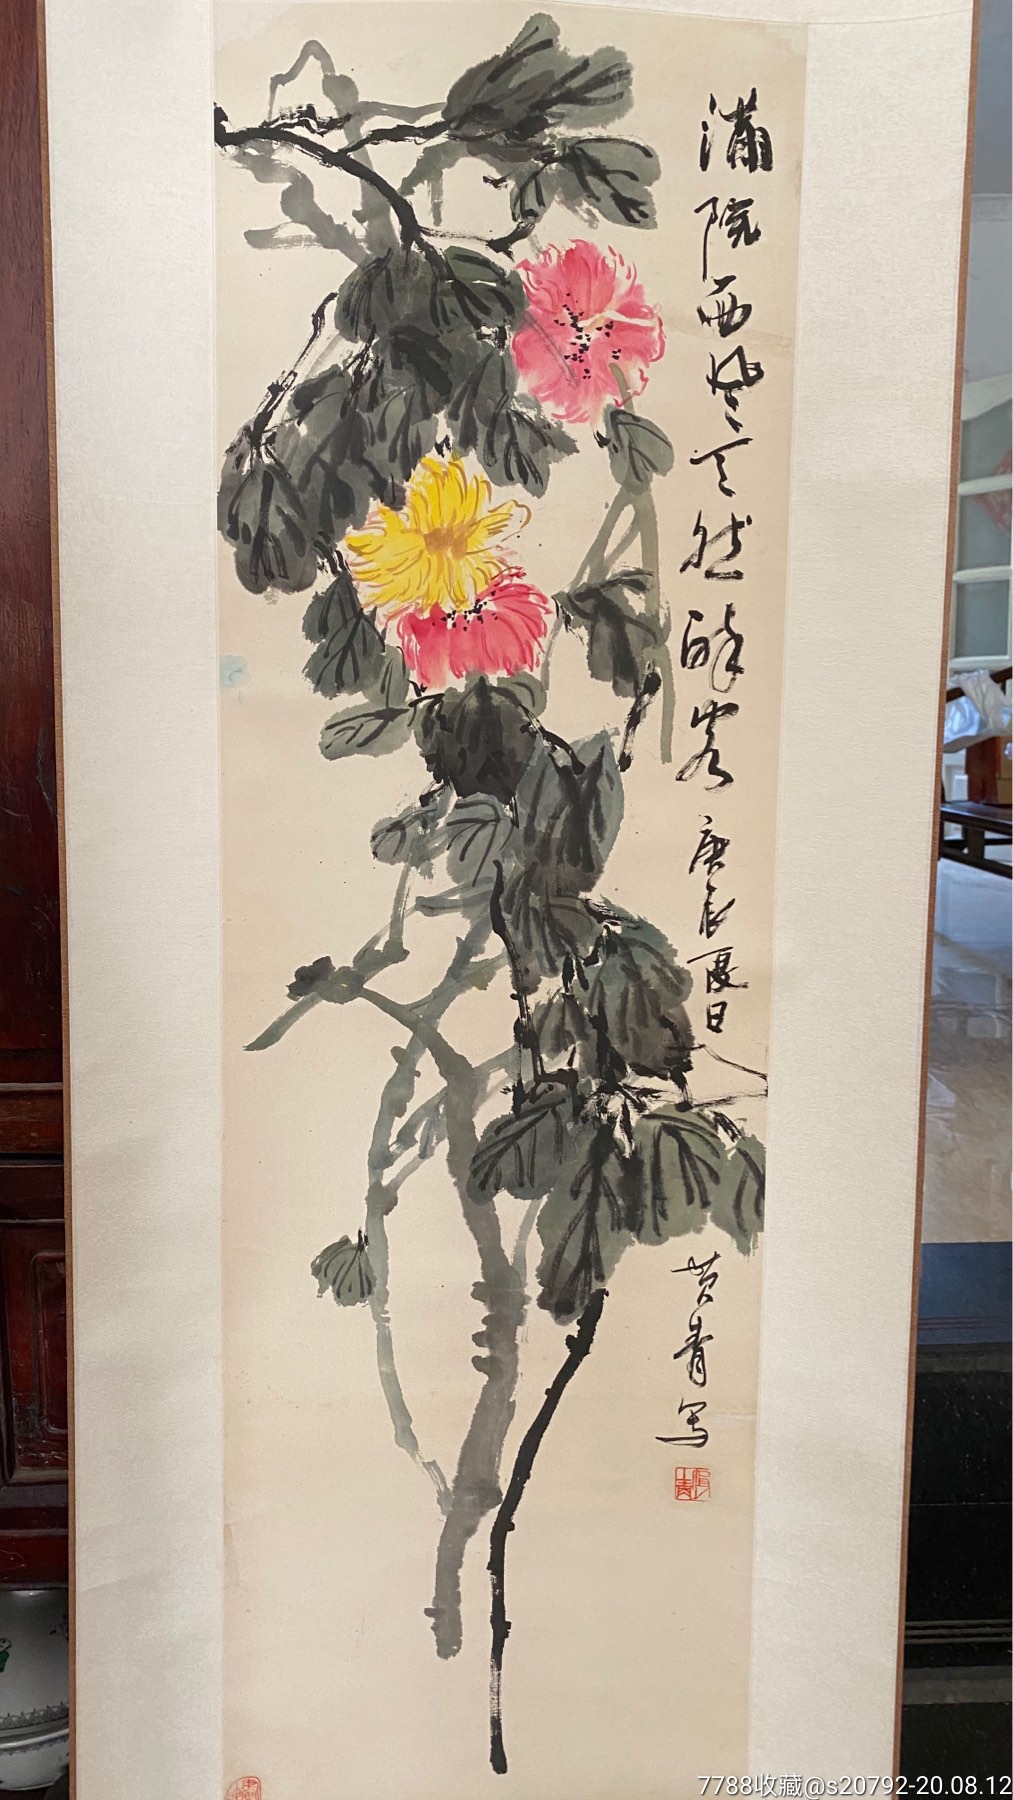 滿院西風天然醉容 庚辰夏日
黄青写
7788收藏@s20792-20.08.12